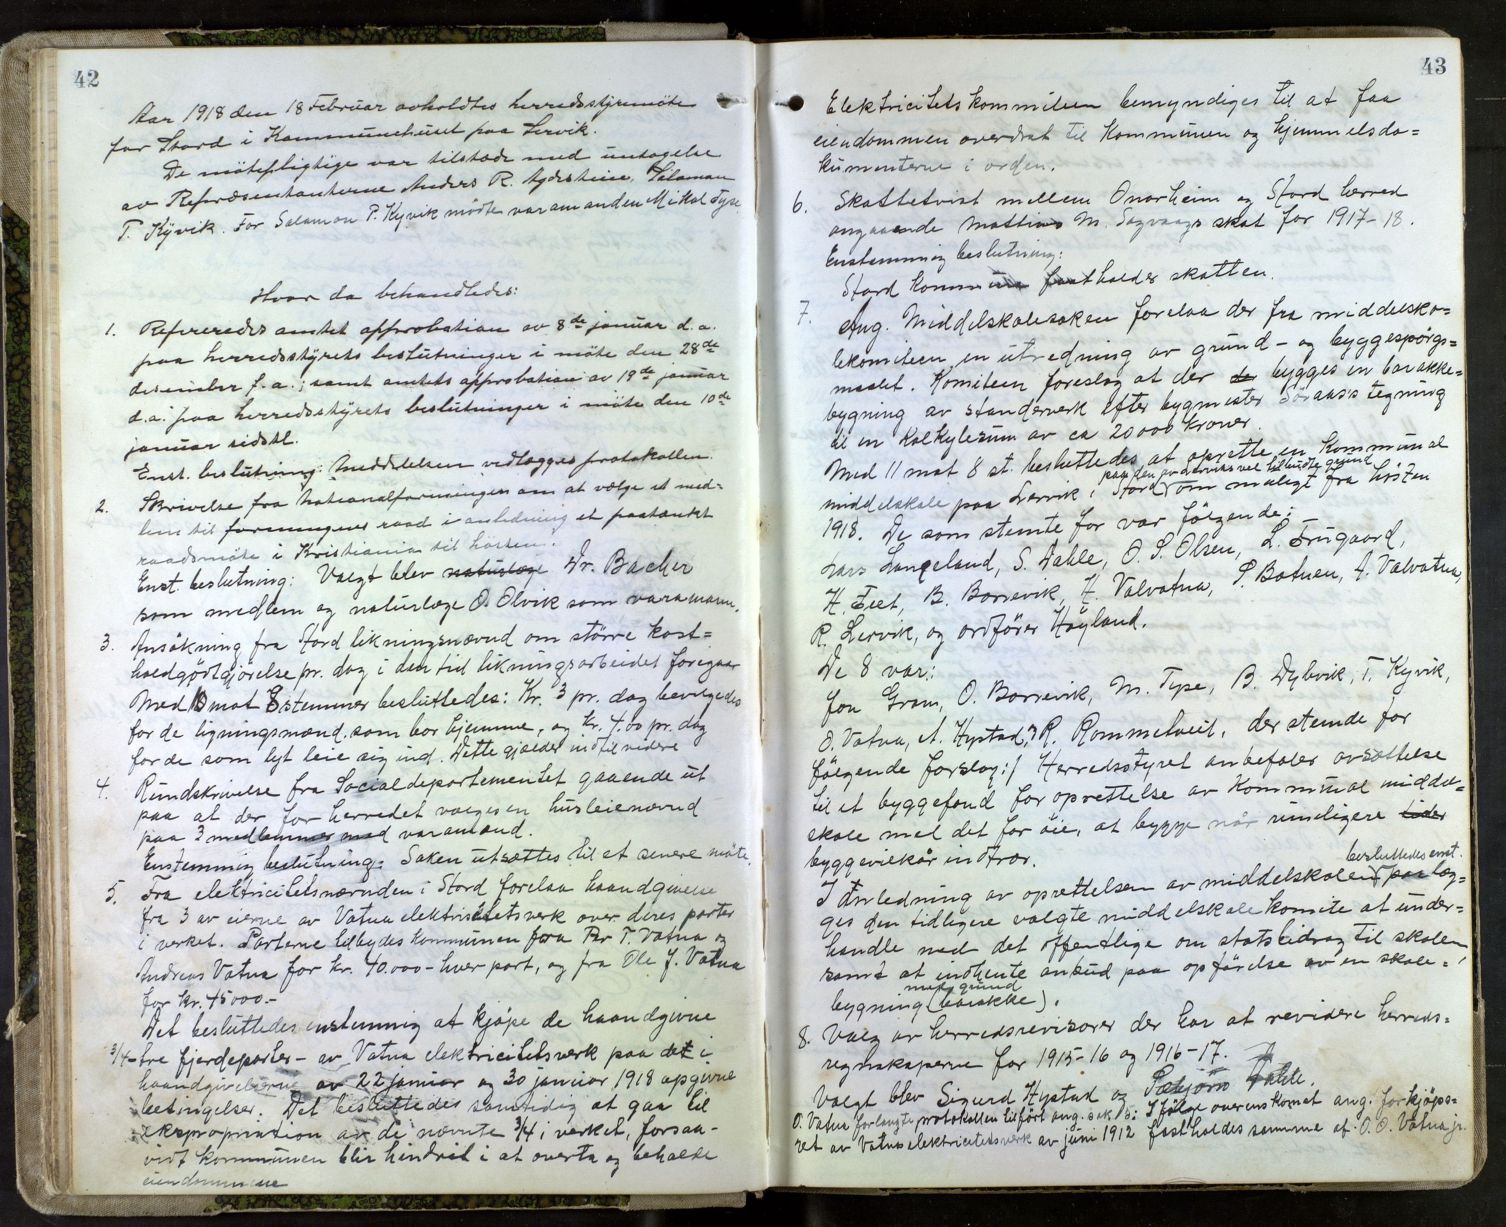 42
Aar 1918 den 18 Februar avholdtes herredsstyremöte
for Stord i Kommunehuset paa Lervik.
De mötepligtige var tilstede med undtagelse
av Repræsentanterne Anders R. Agdesteine, Salamon
T. Kyvik. For Salamon T. Kyvik mödte varamanden Mikal Tyse.
Hvor da behandledes:
1. Refereredes amtets approbation av 8de januar d.a.
paa herredsstyrets beslutninger i möte den 28de
desember f.a.; samt amtets approbation av 19de januar
d.a. paa herredsstyrets beslutninger i möte den 10de
januar sidstl.
Enst. beslutning: Meddelelsen vedlægges protokollen.
2. Skrivelse fra Nationalforeningen om at vælge et med-
lem til foreningens raad i anledning et paatænkt
raadsmöte i Kristiania til hösten.
Enst. beslutning: Valgt blev naturlæge Dr. Bacher
som medlem og naturlæge O. Olvik som varamann.
3. Ansökning fra Stord likningsnævnd om större kost-
holdgodtgjörelse pr. dag i den tid likningsarbeidet foregaar
Med 10 mot 8 stemmer besluttedes: Kr. 3 pr. dag bevilgedes
for de ligningsmænd som bor hjemme, og Kr. 4.00 pr. dag
for de som lyt leie sig ind. Dette gjælder indtil videre
4. Rundskrivelse fra Socialdepartementet gaaende ut
paa at der for herredet vælges en husleienævnd
paa 3 medlemmer med varamænd.
Enstemmig beslutning: Saken utsættes til et senere möte.
5. Fra elektricitetsnævnden i Stord forelaa haandgivelse
fra 3 av eierne av Vatna elektricitetsverk over deres parter
i verket. Parterne tilbydes kommunen fra Per T. Vatna og
Andreas Vatna for kr. 40.000- hver part, og fra Ole J. Vatna
for kr. 45000.-
Det besluttedes enstemmig at kjöpe de haandgivne
3/4- tre fjerdeparter - av Vatna elektricitetsverk paa det i
haandgivelserne av 22 januar og 30 januar 1918 opgivne
betingelser. Det besluttedes samtidig at gaa til
ekspropriation av de nævnte 3/4 i verket, forsaa-
vidt kommunen blir hindret i at overta og beholde
eiendommene
43
Elektricitetskommiteen bemyndiges til at faa
eiendommen overdrat til kommunen og hjemmelsdo-
kumenterne i orden.
6. Skattetvist mellem Onarheim og Stord herred
angaaende Mattias M. Sagvaags skat for 1917-18.
Enstemmig beslutning:
Stord kommune fastholder skatten.
7. Ang. Middelskolesaken forelaa der fra middelsko-
lekomiteen en utredning av grund- og byggespörgs-
maalet. Komiteen foreslog at der de bygges en barakke-
bygning av standerverk efter bygmester Soraas's tegning
til en kalkylesum av ca 20000 kroner.
Med 11 mot 8 st. besluttedes at oprette en kommunal
middelskole paa Lervik, Stord paa den av Lerviks vel tilbudte grund om muligt fra hösten
1918. De som stemte for var fölgende:
Lars Langeland, S. Dahle, O. S. Olsen, L. Trugaard,
H. Feet, B. Borrevik, H. Valvatna, P. Botnen, A. Valvatna,
R. Lervik, og ordförer Höyland.
De 8 var:
Jon Gram, O. Borrevik, M. Tyse, B. Dybvik, T. Kyvik,
O. Vatna, A. Hystad, R. Rommetveit, der stemde for
fölgende forslag:/ Herredsstyret anbefaler avsættelse
til et byggefond for oprettelse av kommunal middel-
skole med det for öie, at bygge når rimeligere tider
byggevilkår indtrer.
I anledning av oprettelsen av middelskolen besluttedes enst. paalæg-
ges den tidligere valgte middelskolekomite at under-
handle med det offentlige om statsbidrag til skolen
samt at indhente anbud paa opförelse av en skole-
bygning (barakke) med grund.
8. Valg av herredsrevisorer der har at revidere herreds-
regnskaperne for 1915-16 og 1916-17.
Valgt blev Sigurd Hystad og Dahle.
O. Vatna forlangte protokollen tilfört ang. sak 5: Ifölge overenskomst ang. forkjöps-
ret av Vatna elektricitetsverk av juni 1912 fastholdes samme af O. O. Vatna jr.